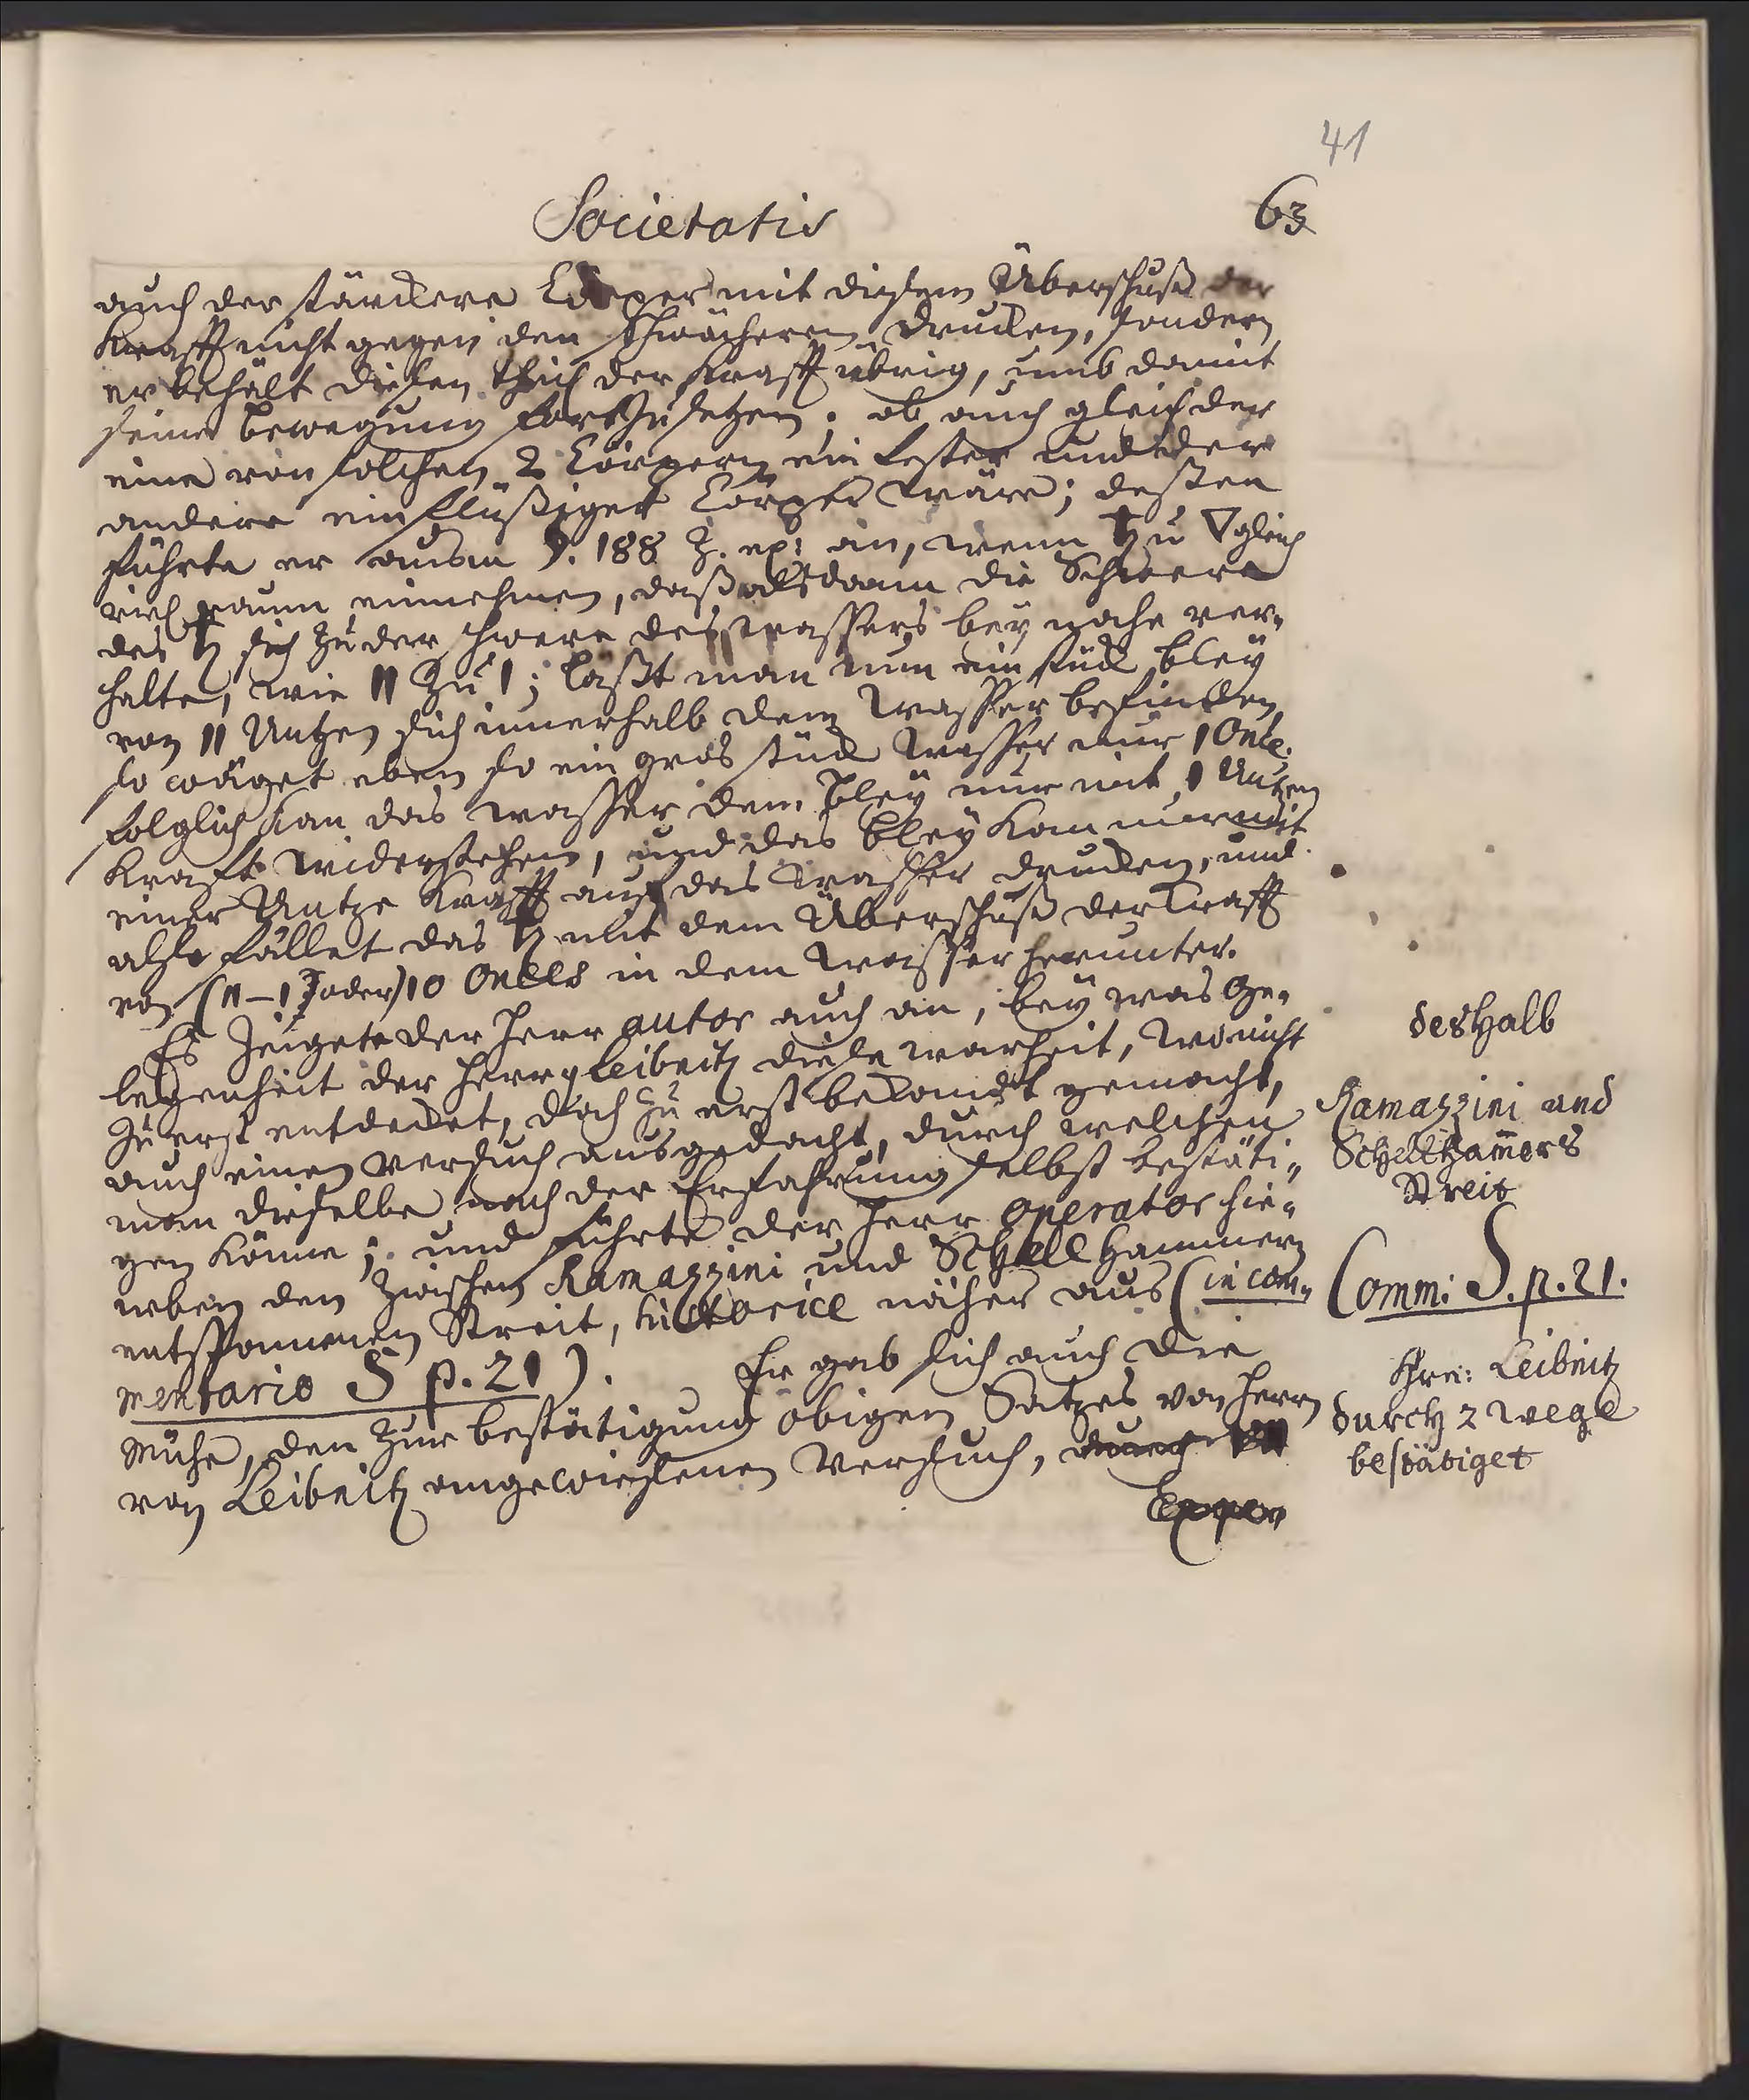 41
Societatis 63
auch der stärckere Cörper mit diesem Überschuß der
Krafft nicht gegen den schwächeren drucken, sondern
er behält diesen theil der Krafft übrig, umb damit
seine bewegung fortzusetzen; ob auch gleich der
eine von solchen 2 Cörpern ein fester und der
andere ein flüßiger Cörper wäre; deßen
führte er ausm §. 188 z. ex: an, wenn ♄ u ▽ gleich
viel raum einnehmen, daß alsdann die Schwere
des ♄ sich zu der schwere des wassers bey nahe ver-
halte, wie 11 zu 1; läßt man nun ein stück bley
von 11 Untzen sich innerhalb dem Wasser befinden,
so wäget eben so ein gros stück Wasser nur 1 Once.
folglich kan das wasser dem bley nur mit 1 Untzen
Krafft widerstehen, und das bley kan nur mit
einer Untze Krafft auf das Wasser drucken, und
also fället das ♄ mit dem Überschuß der Krafft
von (11-1 oder) 10 Onces in dem Wasser herunter.
Es zeigete der Herr autor auch an, bey was Ge-
legenheit der Herr Leibnitz diese warheit, wo nicht
zu erst entdecket, doch zu erst bekandt gemacht,
auch einen versuch ausgedacht, durch welchen
man dieselbe nach der Erfahrung selbst bestäti-
gen könne; und führte der Herr operator hie-
neben den zwischen Ramazzini und Schellhammern
entsponnenen Streit, historice näher aus (in com-
mentario S p. 21). Er gab sich auch die
Mühe, den zur bestätigung obigen Satzes von Herrn
von Leibnitz angewiesenen Versuch, durch
Exper
deshalb
Ramazzini und
Schelthamers
Streit
Comm: S. p. 21.
Hrn: Leibnitz
durch 2 wege
bestätiget